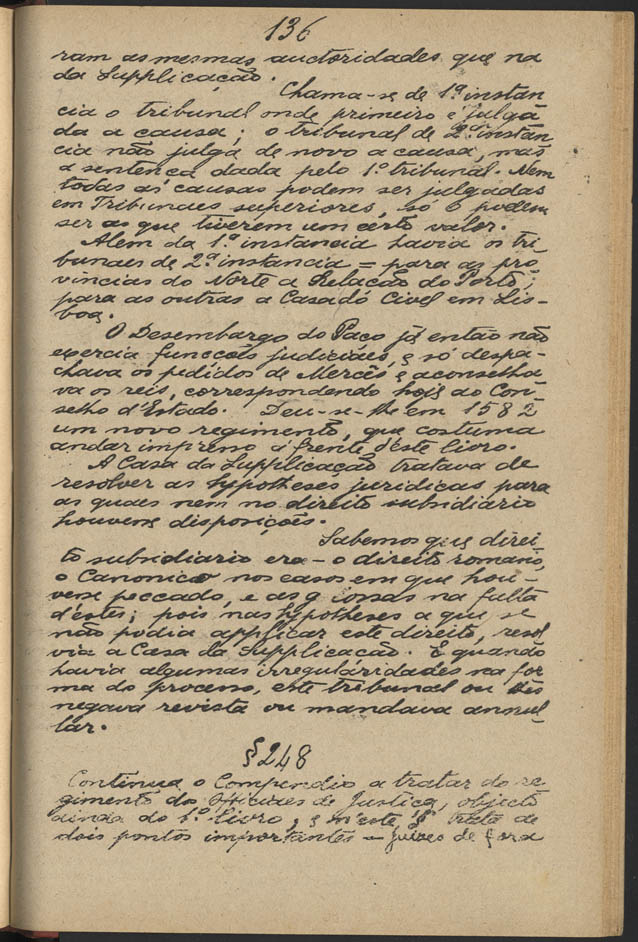 136
ram as mesmas auctoridades que na
da Supplicação.
Chama-se de 1ª instan
cia o tribunal onde primeiro é julga
da a causa; o tribunal de 2ª instan
cia não julga de novo a causa, mas
a sentença dada pelo 1º tribunal. Nem
todas as causas podem ser julgadas
em Tribunaes superiores, só o podem
ser as que tiverem um certo valor.
Alem da 1ª instancia havia os tri-
bunaes de 2ª instancia = para as pro-
vincias do Norte a Relação do Porto;
para as outras a Casa do Civel em Lis-
boa.
O Desembargo do Paço já então não
exercia funcções judiciáes, e só despa-
chava os pedidos de Mercês e aconselha
va os reis, correspondendo hoje ao Con-
selho d'Estado. Deu-se-lhe em 1582
um novo regimento, que costuma
andar impreno á frente d'este livro.
A Casa da Supplicação tratava de
resolver as hypotheses juridicas para
as quaes nem no direito subsidiario
houvene disposições.
Sabemos que direi-
to subsidiario era - o direito romano,
o Canonico nos casos em que hou-
vene peccado, e as glossas na falta
d'estes; pois nas hypotheses a que se
não podia applicar este direito, resol
via a Casa da Supplicação. E quando
havia algumas irregularidades na for
ma do processo, este tribunal ou
negava revista ou mandava annul-
lar.
§ 248
Continua o Compendio a tratar do re
gimento dos Officiaes de Justiça, objecto
ainda do 1º livro; e n'este § trata de
dois pontos importantes = Juizes de fora